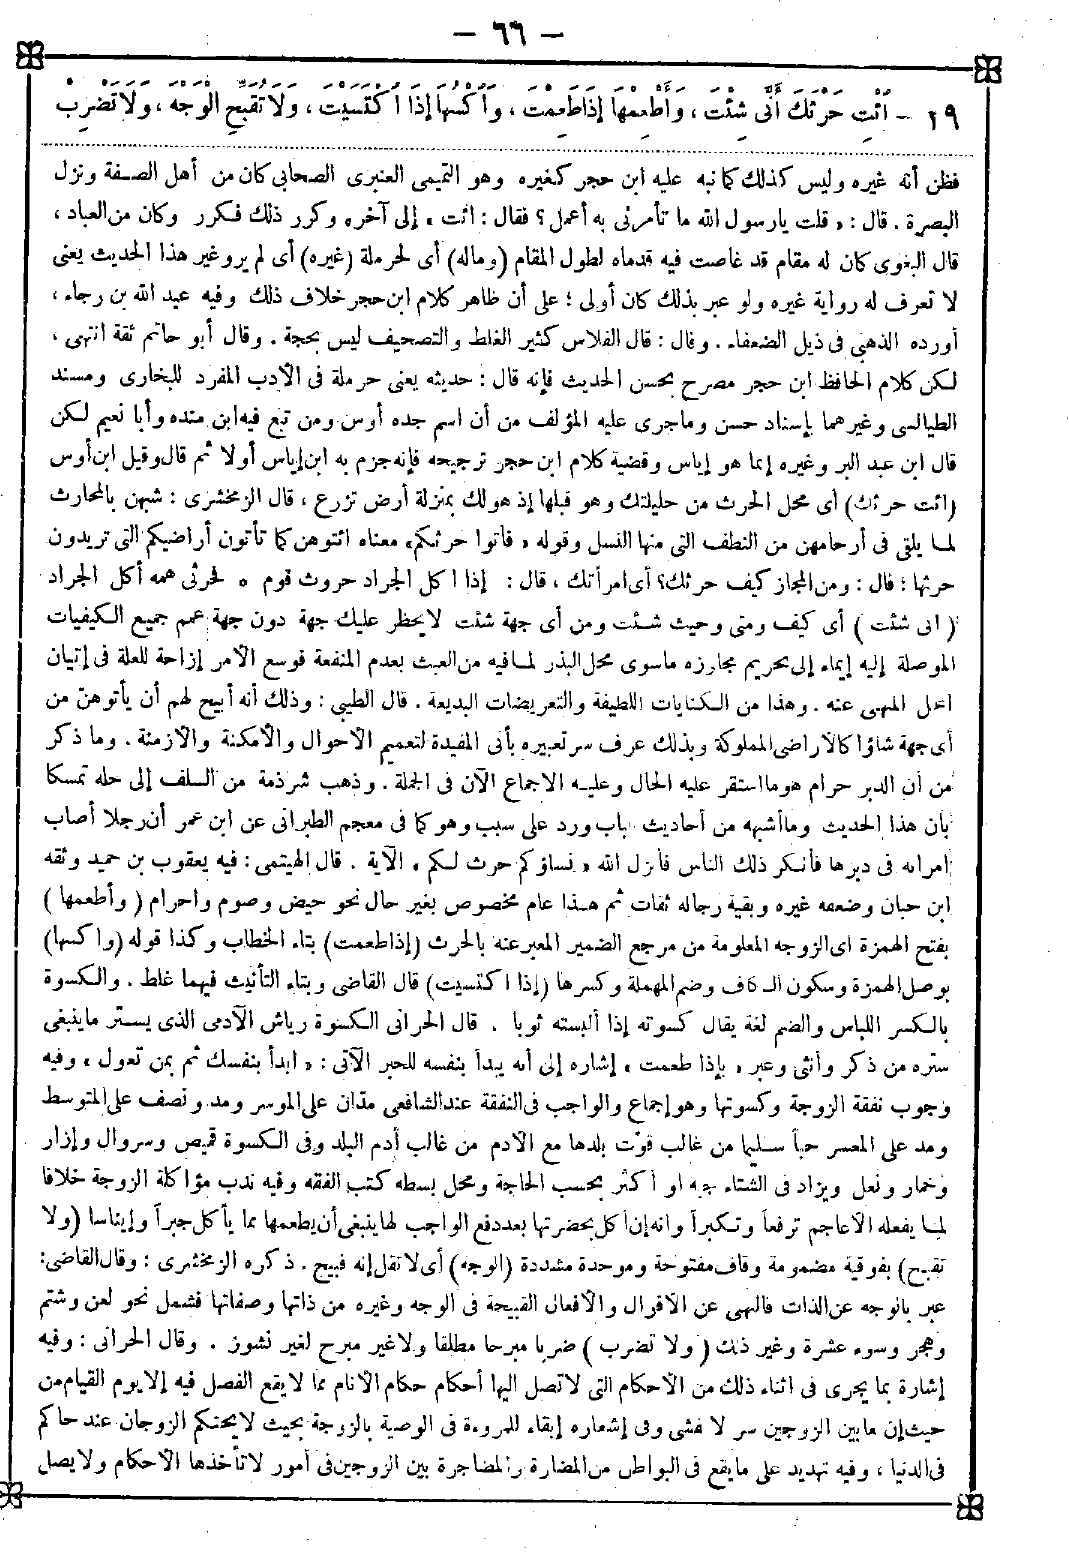 — ٦٦ —
٢٩ — ائْتِ حَرْثَكَ أَنَّى شِئْتَ ، وَأَطْعِمْهَا إِذَا طَعِمْتَ ، وَاكْسُهَا إِذَا اكْتَسَيْتَ ، وَلَا تُقَبِّحِ الْوَجْهَ ، وَلَا تَضْرِبْ
فظن أنه غيره وليس كذلك كما نبه عليه ابن حجر كغيره وهو التميمى العنبرى الصحابى كان من أهل الصفة ونزل
البصرة . قال : « قلت يارسول الله ما تأمرنى به أعمل ؟ فقال : ائت » إلى آخره وكرر ذلك فكرر وكان من العباد ،
قال البغوى كان له مقام قد غاصت فيه قدماه لطول المقام (وماله) أى لحرملة (غيره) أى لم يرو غير هذا الحديث يعنى
لا تعرف له رواية غيره ولو عبر بذلك كان أولى ؛ على أن ظاهر كلام ابن حجر خلاف ذلك وفيه عبد الله بن رجاء ،
أورده الذهبى فى ذيل الضعفاء . وقال : قال الفلاس كثير الغلط والتصحيف ليس بحجة . وقال أبو حاتم ثقة انتهى ،
لكن كلام الحافظ ابن حجر مصرح بحسن الحديث فإنه قال : حديثه يعنى حرملة فى الأدب المفرد للبخارى ومسند
الطيالسى وغيرهما بإسناد حسن وماجرى عليه المؤلف من أن اسم جده أوس ومن تبع فيه ابن منده وأبا نعيم لكن
قال ابن عبد البر وغيره إنما هو إياس وقضية كلام ابن حجر ترجيحه فإنه جزم به ابن إياس أولا ثم قال وقيل ابن أوس
(ائت حرثك) أى محل الحرث من حليلتك وهو قبلها إذ هو لك بمنزلة أرض تزرع ، قال الزمخشرى : شبهن بالمحارث
لما يلقى فى أرحامهن من النطف التى منها النسل وقوله « فأتوا حرثكم » معناه ائتوهن كما تأتون أراضيكم التى تريدون
حرثها ؛ قال : ومن المجاز كيف حرثك؟ أى امرأتك ، قال : إذا اكل الجراد حروث قوم ه فحرثى همه أكل الجراد
( انى شئت ) أى كيف ومتى وحيث شئت ومن أى جهة شئت لايحظر عليك جهة دون جهة عمم جميع الكيفيات
الموصلة إليه إيماء إلى تحريم مجاوزه ماسوى محل البذر لما فيه من العبث بعدم المنفعة فوسع الأمر إزاحة للعلة فى إتيان
المحل المنهى عنه . وهذا من الكنايات اللطيفة والتعريضات البديعة . قال الطيبى : وذلك أنه أبيح لهم أن يأتوهنّ من
أى جهة شاؤا كالأراضى المملوكة وبذلك عرف سر تعبيره بأنى المفيدة لتعميم الأحوال والأمكنة والأزمنة . وما ذكر
من أن الدبر حرام هو ما استقر عليه الحال وعليه الاجماع الآن فى الجملة . وذهب شرذمة من السلف إلى حله تمسكا
بأن هذا الحديث وما أشبهه من أحاديث الباب ورد على سبب وهو كما فى معجم الطبرانى عن ابن عمر أن رجلا أصاب
امرأته فى دبرها فأنكر ذلك الناس فأنزل الله « نساؤكم حرث لكم » الآية . قال الهيتمى : فيه يعقوب بن حميد وثقه
ابن حبان وضعفه غيره وبقية رجاله ثقات ثم هذا عام مخصوص بغير حال نحو حيض وصوم واحرام ( وأطعمها )
بفتح الهمزة اى الزوجه المعلومة من مرجع الضمير المعبر عنه بالحرث (إذا طعمت) بتاء الخطاب وكذا قوله (واكسها)
بوصل الهمزة وسكون الكاف وضم المهملة وكسرها (إذا اكتسيت) قال القاضى وبتاء التأنيث فيهما غلط . والكسوة
بالكسر اللباس والضم لغة يقال كسوته إذا ألبسته ثوبا . قال الحرانى الكسوة رياش الآدمى الذى يستر ماينبغى
ستره من ذكر وأنثى وعبر « بإذا طعمت » إشاره إلى أنه يبدأ بنفسه للخبر الآتى : « ابدأ بنفسك ثم بمن تعول » وفيه
وجوب نفقة الزوجة وكسوتها وهو إجماع والواجب فى النفقة عند الشافعى مدّان على الموسر ومد ونصف على المتوسط
ومد على المعسر حباً سليما من غالب قوت بلدها مع الأدم من غالب أدم البلد وفى الكسوة قميص وسروال وإزار
وخمار ونعل ويزاد فى الشتاء جبه او أكثر بحسب الحاجة ومحل بسطه كتب الفقه وفيه ندب مؤاكلة الزوجة خلافا
لما يفعله الأعاجم ترفعاً وتكبراً وانه إن أكل بحضرتها بعد دفع الواجب لها ينبغى أن يطعمها مما يأكل جبراً وإيناسا (ولا
تقبح) بفوقية مضمومة وقاف مفتوحة وموحدة مشددة (الوجه) أى لا تقل إنه قبيح . ذكره الزمخشرى : وقال القاضى:
عبر بالوجه عن الذات فالنهى عن الأقوال والأفعال القبيحة فى الوجه وغيره من ذاتها وصفاتها فشمل نحو لعن وشتم
وهجر وسوء عشرة وغير ذلك ( ولا تضرب ) ضربا مبرحا مطلقا ولا غير مبرح لغير نشوز . وقال الحرانى : وفيه
إشارة بما يجرى فى اثناء ذلك من الأحكام التى لا تصل اليها أحكام حكام الأنام مما لا يقع الفصل فيه إلا يوم القيام من
حيث إن ما بين الزوجين سر لا فشى وفى إشعاره إبقاء للمروءة فى الوصية بالزوجة بحيث لا يحتكم الزوجان عند حاكم
فى الدنيا ، وفيه تهديد على ما يقع فى البواطن من المضارة والمضاجرة بين الزوجين فى أمور لا تأخذها الأحكام ولا يصل